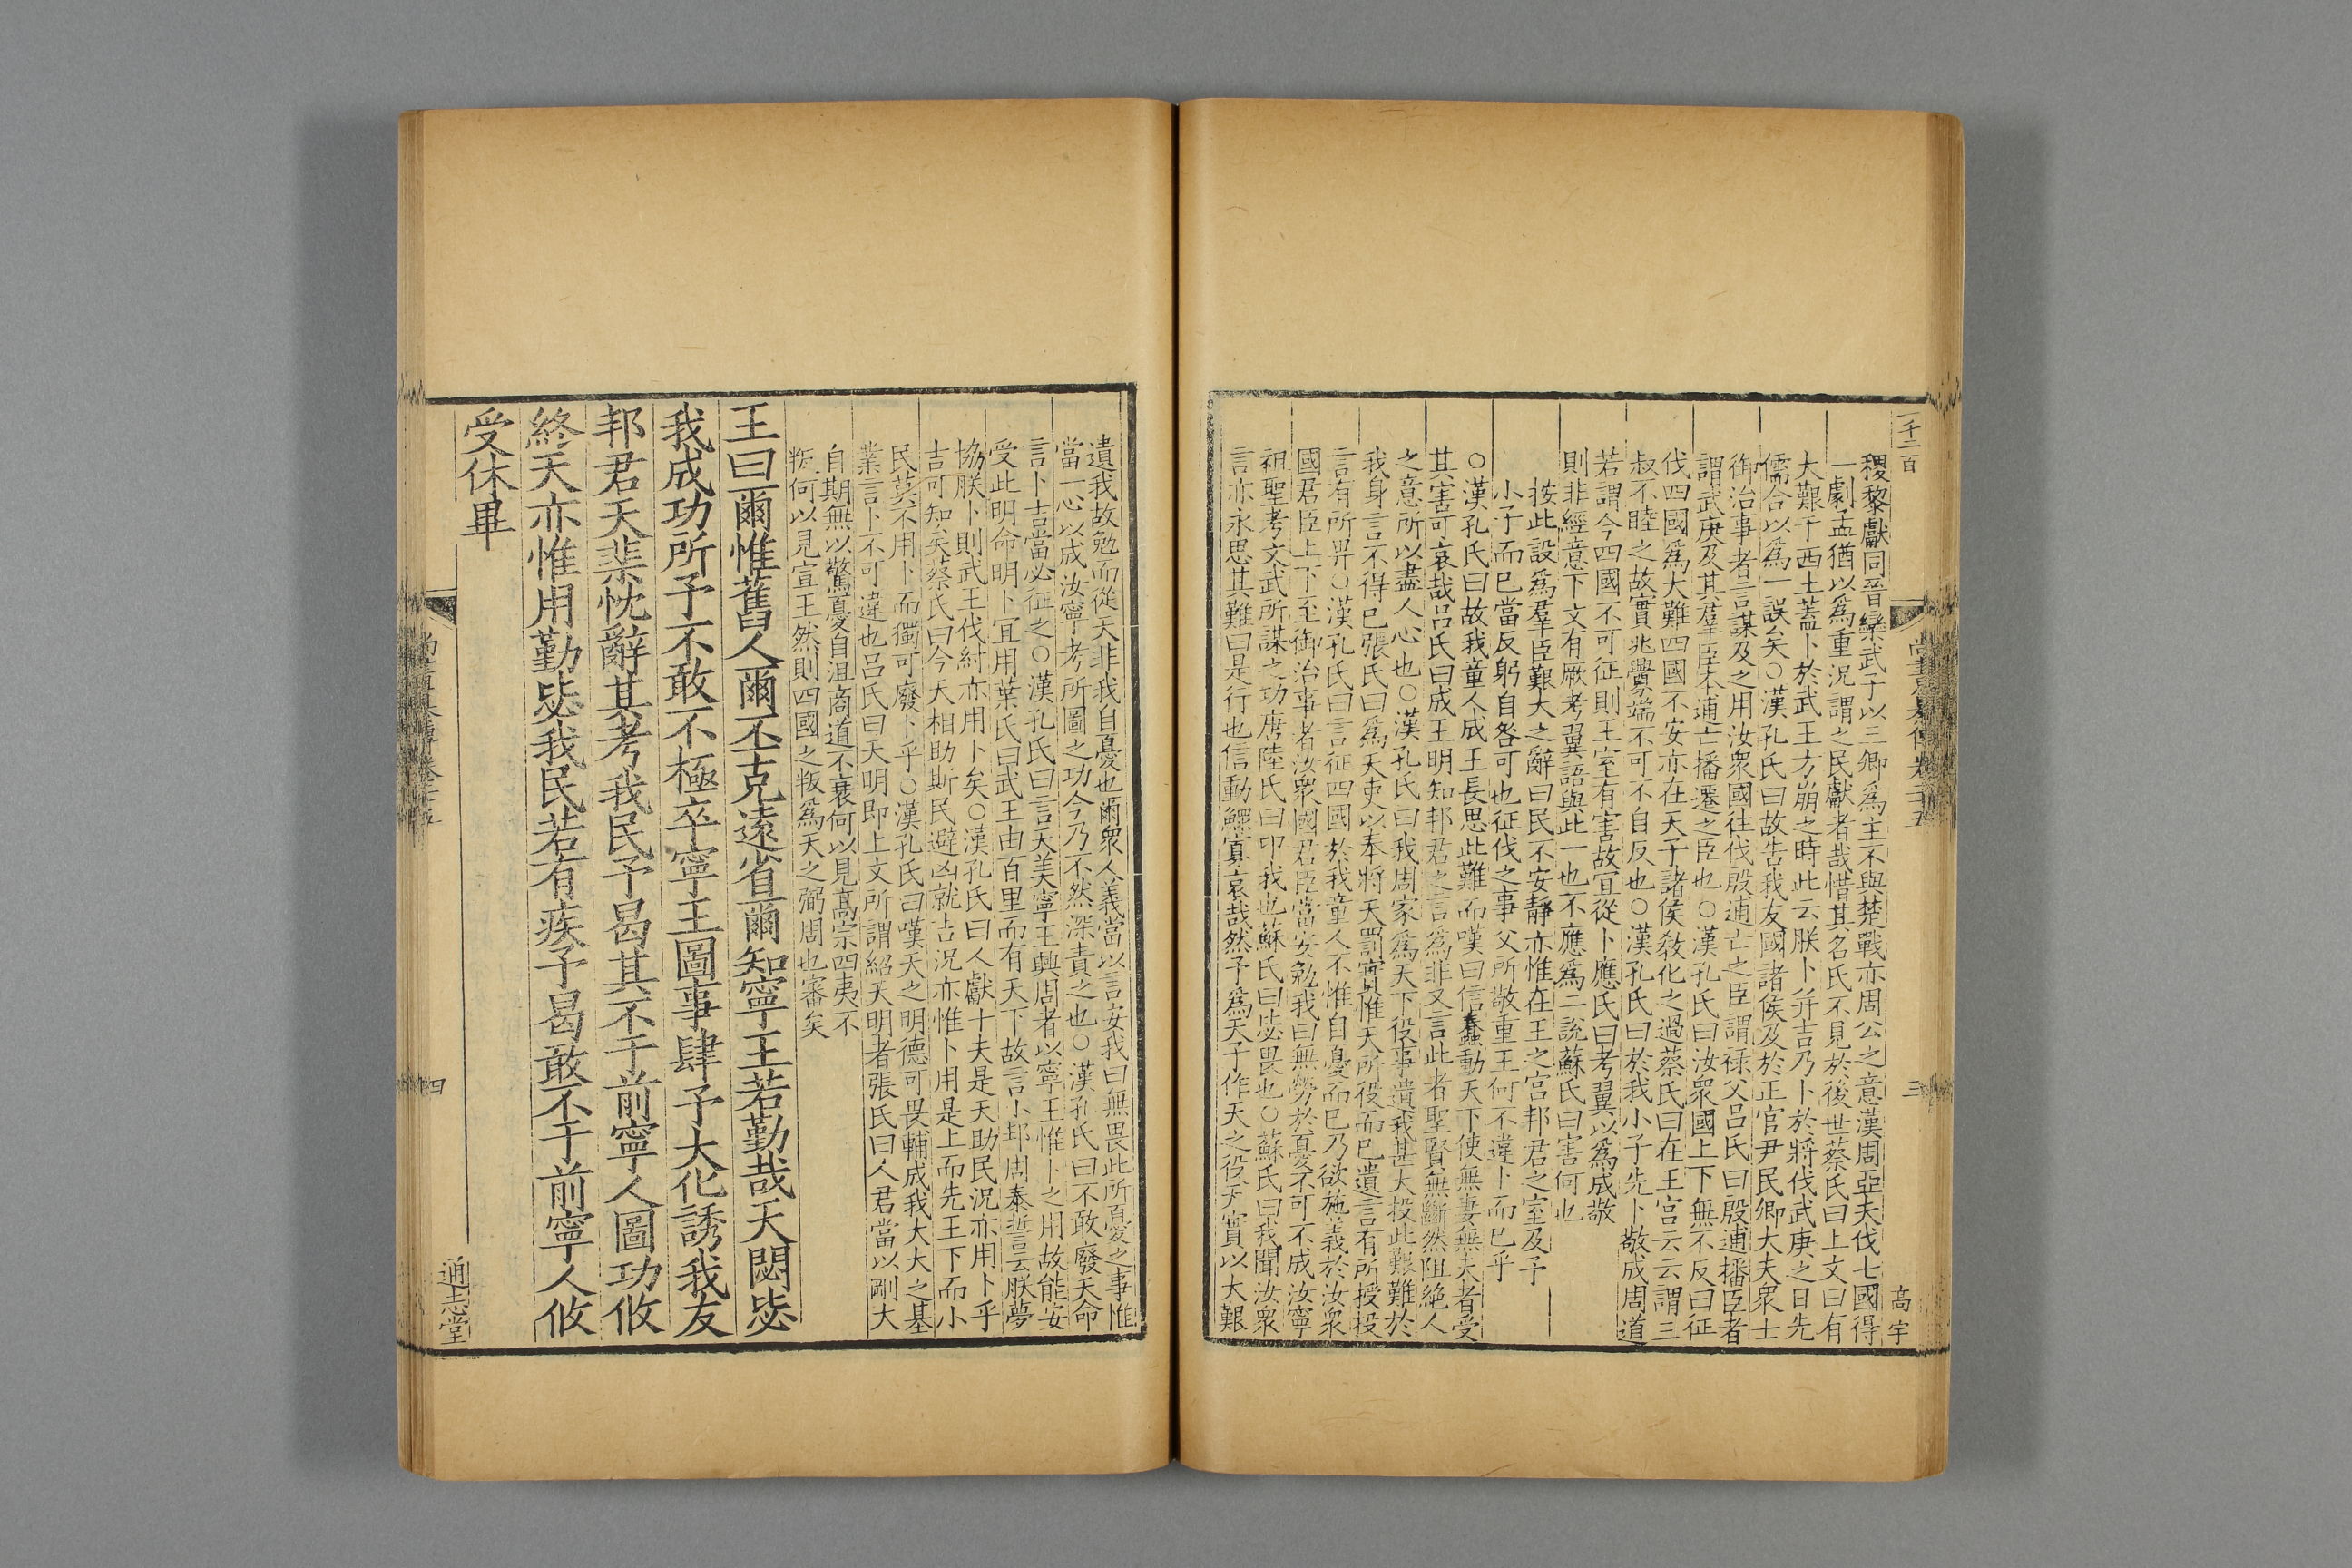 一千二百
三
高宇
稷黎獻同晉欒武子以三卿爲主不與楚戰亦周公之意漢周亞夫伐七國得
一劇孟猶以爲重況謂之民獻者哉惜其名氏不見於後世蔡氏曰上文曰有
大艱于西土蓋卜於武王方崩之時此云朕卜并吉乃卜於將伐武庚之日先
儒合以爲一誤矣○漢孔氏曰故告我友國諸侯及於正官尹民卿大夫衆士
御治事者言謀及之用汝衆國往伐殷逋亡之臣謂祿父呂氏曰殷逋播臣者
謂武庚及其羣臣本逋亡播遷之臣也○漢孔氏曰汝衆國上下無不反曰征
伐四國爲大難四國不安亦在天子諸侯敎化之過蔡氏曰在王宮云云謂三
叔不睦之故實兆釁端不可不自反也○漢孔氏曰於我小子先卜敬成周道
若謂今四國不可征則王室有害故宜從卜應氏曰考翼以爲成敬
則非經意下文有厥考翼語與此一也不應爲二說蘇氏曰害何也
按此設爲羣臣艱大之辭曰民不安靜亦惟在王之宮邦君之室及予
小子而已當反躬自咎可也征伐之事父所敬重王何不違卜而已乎
○漢孔氏曰故我童人成王長思此難而嘆曰信蠢動天下使無妻無夫者受
其害可哀哉呂氏曰成王明知邦君之言爲非又言此者聖賢無斷然阻絶人
之意所以盡人心也○漢孔氏曰我周家爲天下役事遺我甚大投此艱難於
我身言不得已張氏曰爲天吏以奉將天罰實惟天所役而已遺言有所授投
言有所畀○漢孔氏曰言征四國於我童人不惟自憂而已乃欲施義於汝衆
國君臣上下至御治事者汝衆國君臣當安勉我曰無勞於憂不可不成汝寧
祖聖考文武所謀之功唐陸氏曰卬我也蘇氏曰毖畏也○蘇氏曰我聞汝衆
言亦永思其難曰是行也信動鰥寡哀哉然予爲天子作天之役天實以大艱
遺我故勉而從天非我自憂也爾衆人義當以言安我曰無畏此所憂之事惟
當一心以成汝寧考所圖之功今乃不然深責之也○漢孔氏曰不敢廢天命
言卜吉當必征之○漢孔氏曰言天美寧王興周者以寧王惟卜之用故能安
受此明命明卜宜用葉氏曰武王由百里而有天下故言小邦周泰誓言云朕夢
協朕卜則武王伐紂亦用卜矣○漢孔氏曰人獻十夫是天助民況亦用卜乎
吉可知矣蔡氏曰今天相助斯民避凶就吉況亦惟卜用是上而先王下而小
民莫不用卜而獨可廢卜乎○漢孔氏曰嘆天之明德可畏輔成我大大之基
業言卜不可違也呂氏曰天明即上文所謂紹天明者張氏曰人君當以剛大
自期無以驚憂自沮商道不衰何以見高宗四夷不
叛何以見宣王然則四國之叛爲天之弼周也審矣
王曰爾惟舊人爾丕克遠省爾知寧王若勤哉天閟毖
我成功所予不敢不極卒寧王圖事肆予大化誘我友
邦君天棐忱辭其考我民予曷其不于前寧人圖功攸
終天亦惟用勤毖我民若有疾予曷敢不于前寧人攸
受休畢
四
通志堂